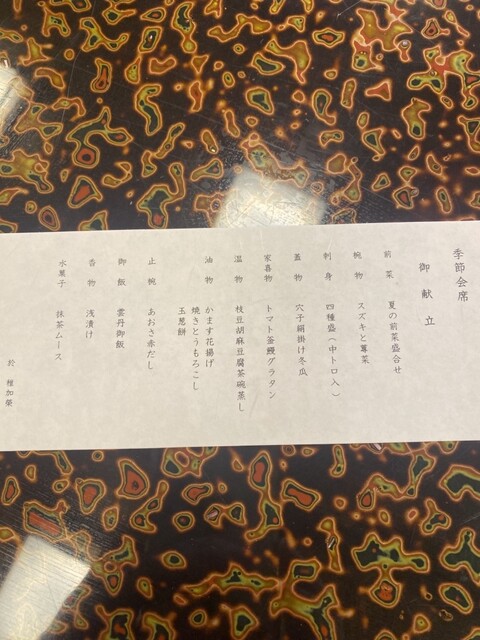 季節会席
御献立
前菜 夏の前菜盛合せ
椀物 スズキと蓴菜
刺身 四種盛(中トロ入)
蓋物 穴子絹掛け冬瓜
家喜物 トマト釜鰻グラタン
温物 枝豆胡麻豆腐茶碗蒸し
油物 かます花揚げ
焼きとうもろこし
玉葱餅
止椀 あおさ赤だし
御飯 雲丹御飯
香物 浅漬け
水菓子 抹茶ムース
於 種加榮